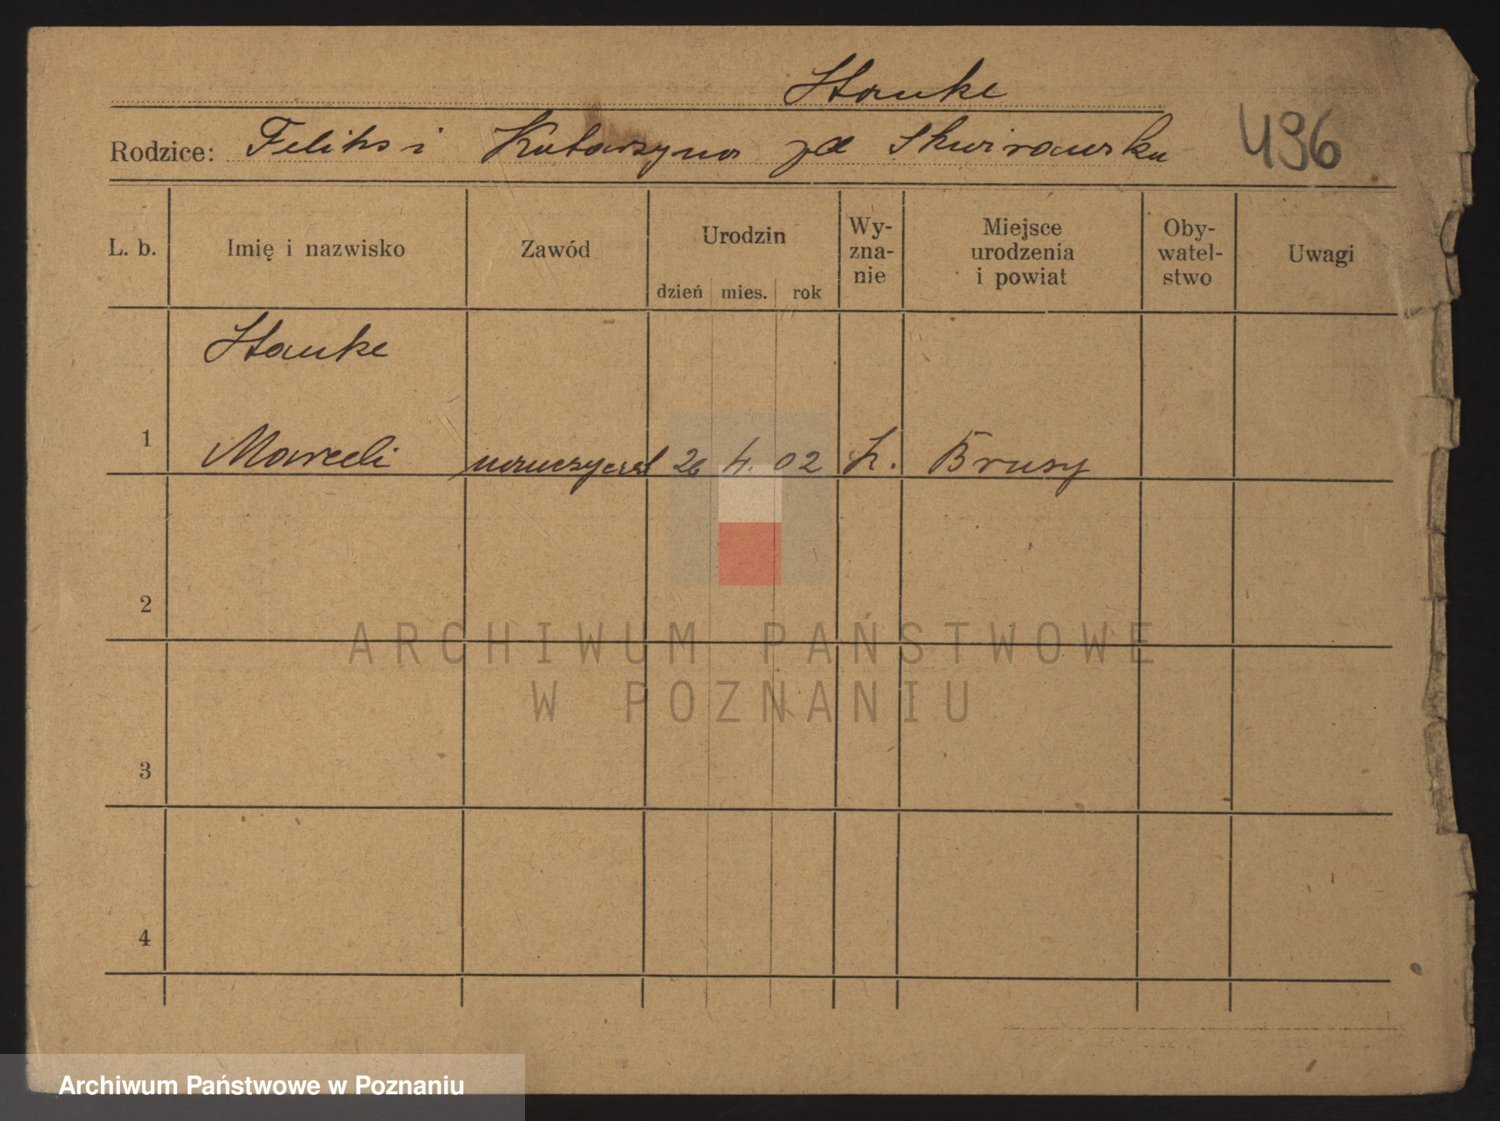 Stanke
Rodzice: Feliks i Katarzyna zd Skwirawska
496
L. b. Imię i nazwisko Zawód Urodzin dzień mies. rok Wy-zna-nie Miejsce urodzenia i powiat Oby-watel-stwo Uwagi
Stanke
1 Marceli nauczyciel 26 4. 02 k. Brusy
2
3
4
ARCHIWUM PAŃSTWOWE
W POZNANIU
Archiwum Państwowe w Poznaniu